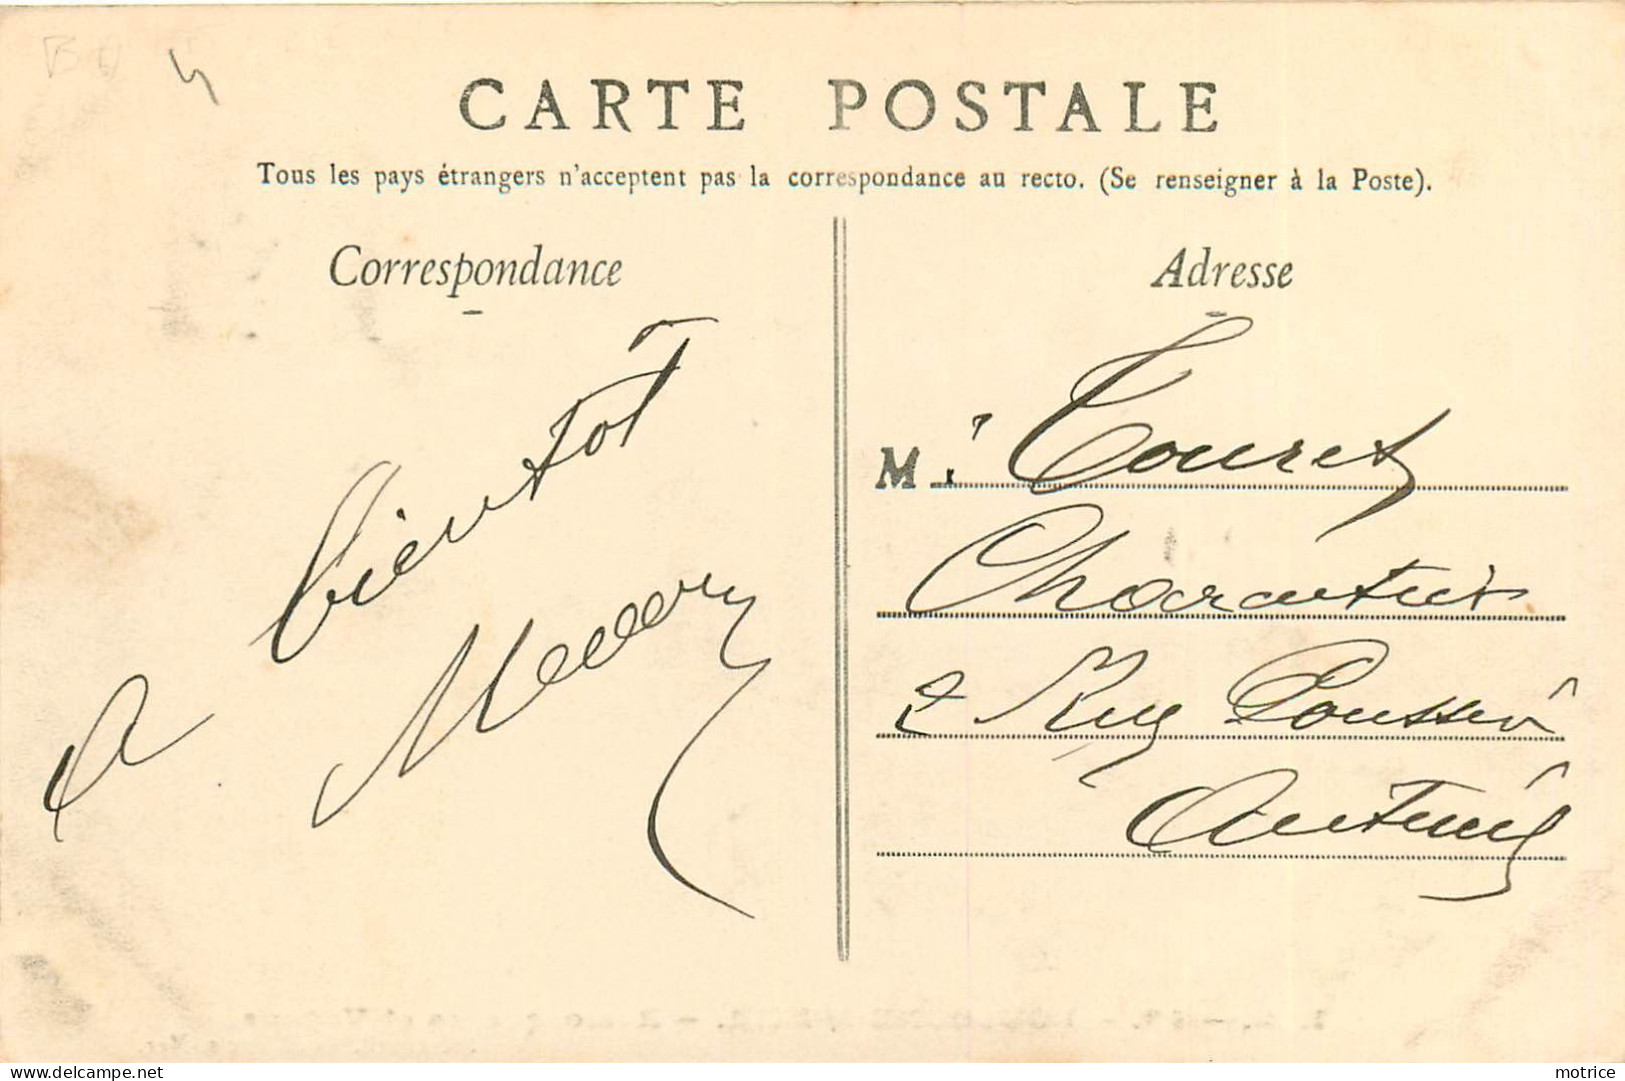 CARTE POSTALE
Tous les pays étrangers n'acceptent pas la correspondance au recto. (Se renseigner à la Poste).
Correspondance
A bientôt
Adresse
M. Touret
Charcutier
2 Rue Poussin
Auteuil
www.delcampe.net
motrice